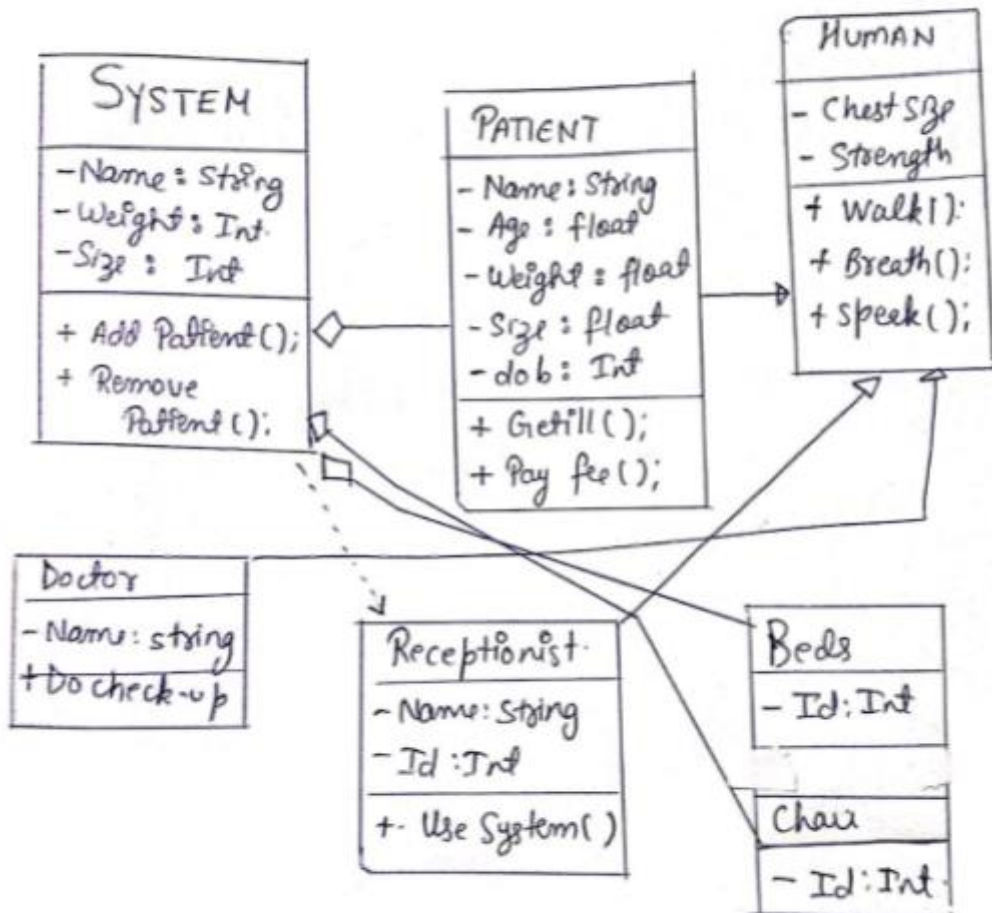 SYSTEM
- Name : String
- Weight : Int.
- Size : Int
+ Add Patient();
+ Remove
Patient();
PATIENT
- Name : String
- Age : float
- Weight : float
- Size : float
- dob : Int
+ Getill();
+ Pay fee();
HUMAN
- Chest Size
- Strength
+ Walk():
+ Breath():
+ Speek();
Doctor
- Name: string
+ Do check-up
Receptionist.
- Name: String
- Id : Int
+. Use System()
Beds
- Id : Int
Chair
- Id : Int.